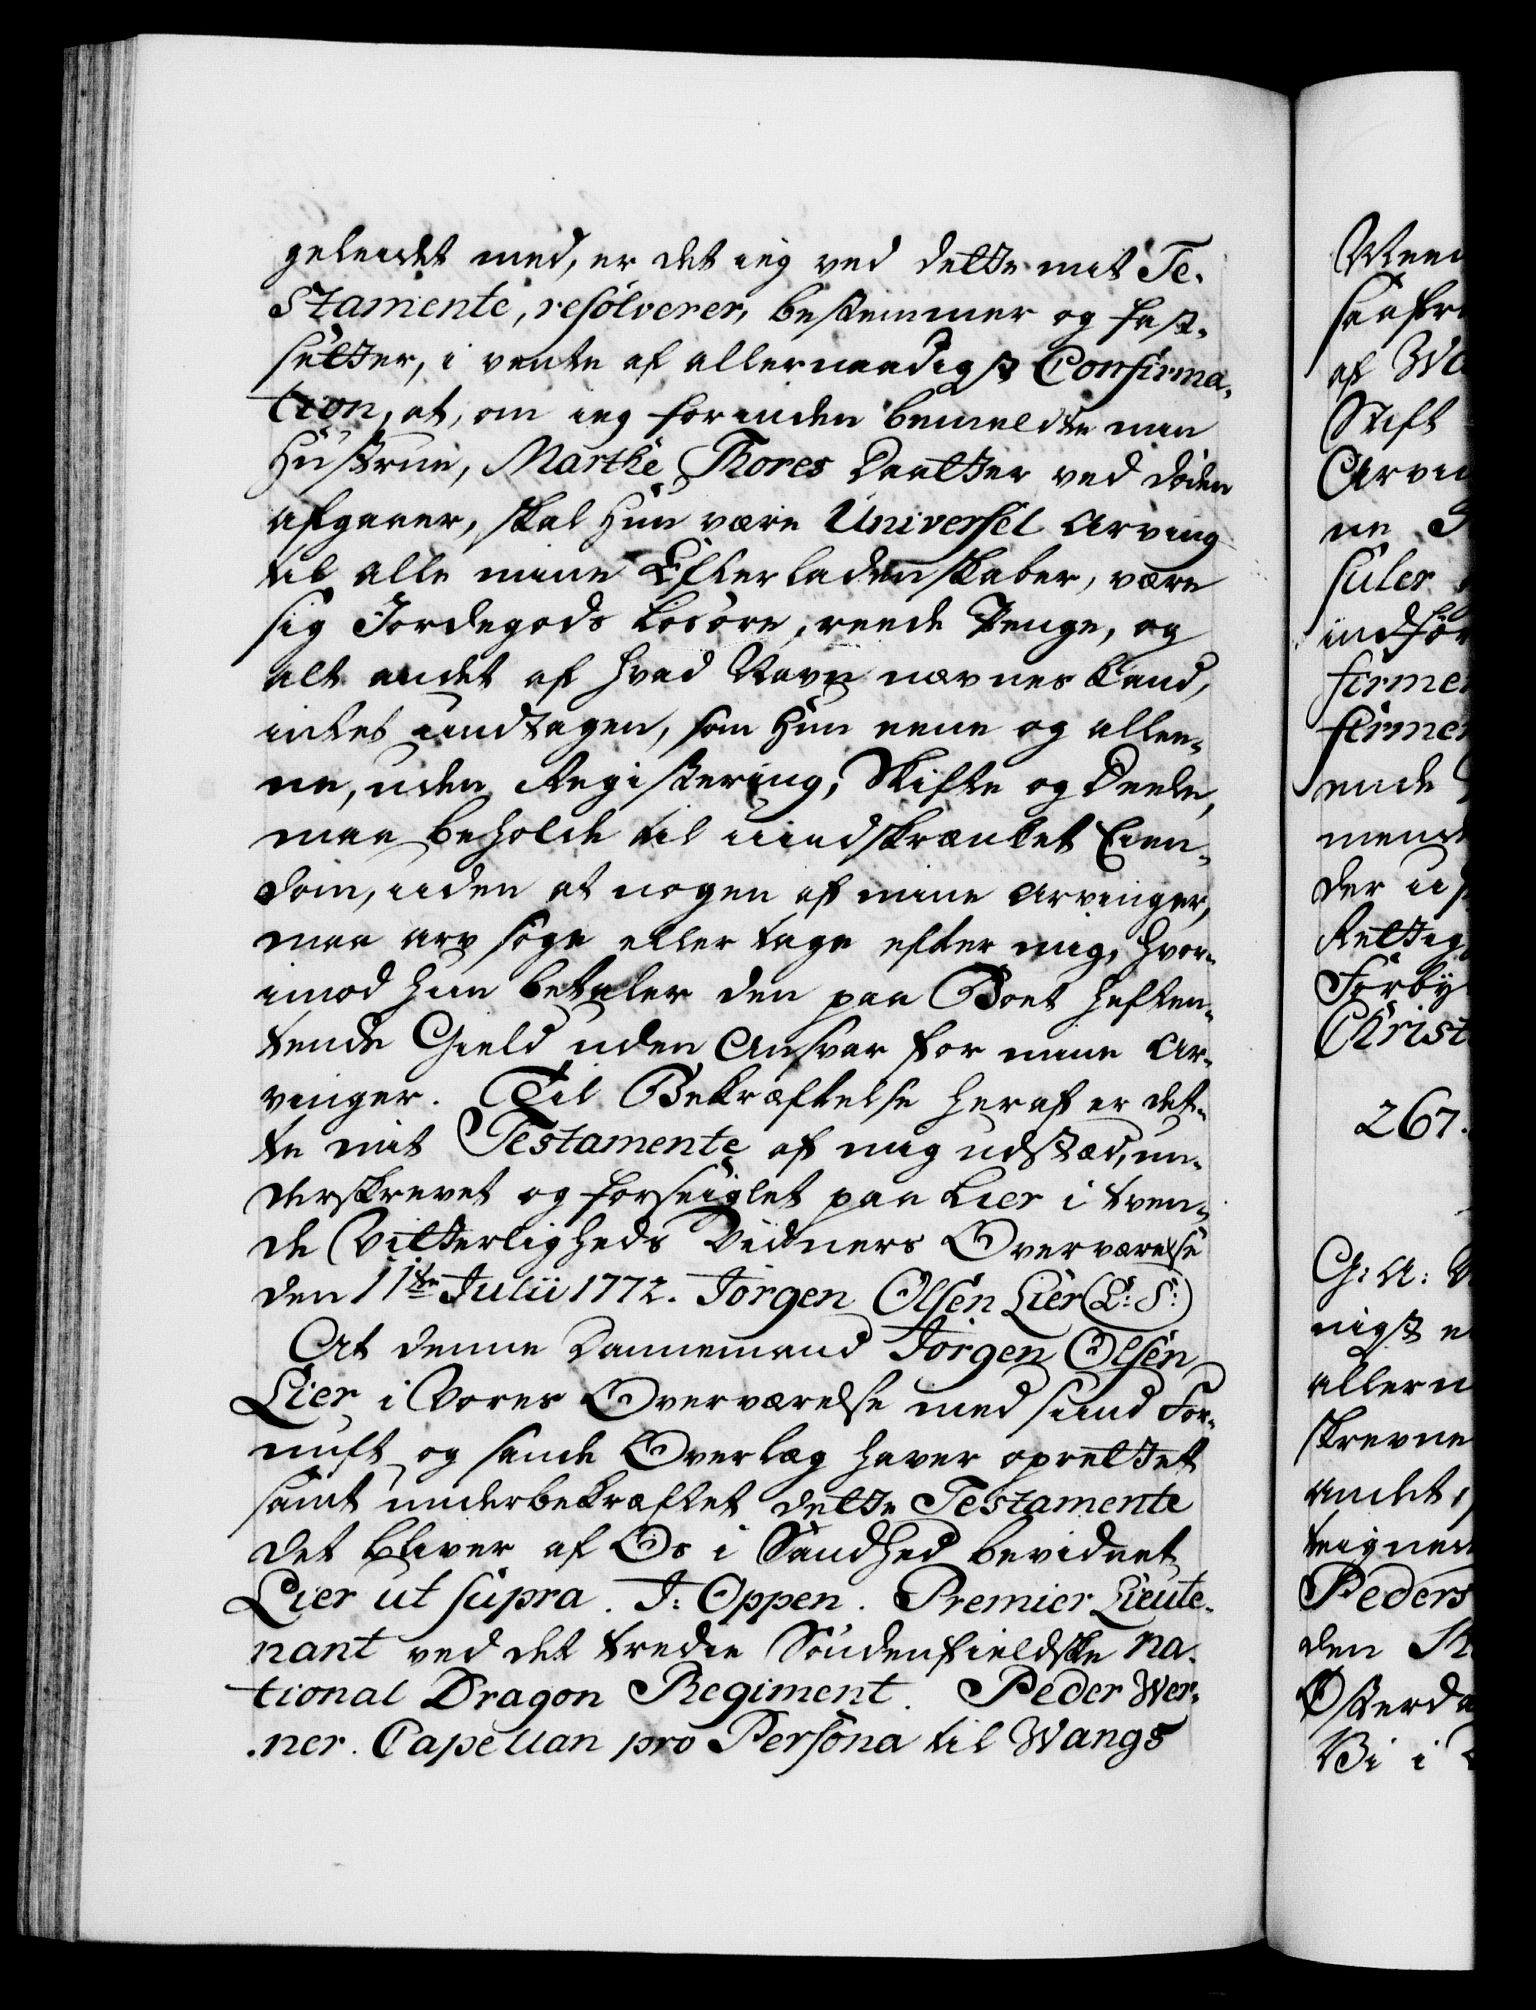 geleidet med, er det ieg ved dette mit Te-
stamente, resolverer, bestemmer og fast-
sætter, i vente af allernaadigst Confirma-
tion, at, om ieg forinden bemeldte min
Hustrue, Marthe Thores Daatter ved døden
afgaaer, skal Hun være Universel Arving
til alle mine Efterladenskaber, være
sig Jordegods Losøre, reede Penge, og
alt andet af hvad Navn nævnes kand,
intet undtagen, som Hun eene og allee-
ne, uden Registering, Skifte og Deele,
maa beholde til uindskrænket Eien-
dom, uden at nogen af mine Arvinger,
maa arv søge eller tage efter mig, hvor-
imod hun betaler den paa Boet heften-
tende Gield uden Ansvar for mine Ar-
vinger. Til Bekræftelse heraf er det-
te mit Testamente af mig udstæd, un-
derskrevet og forseiglet paa Lier i tven-
de Vitterligheds Vidners Overværelse
den 11te Julii 1772. Jørgen Olsen Lier (L: S:)
At denne Dannemand Jørgen Olsen
Lier i Vores Overværelse med sund For-
nuft og sande Overlæg haver oprettet
samt underbekræftet dette Testamente
det bliver af Os i Sandhed bevidnet
Lier ut supra. J: Oppen. Premier Lieute-
nant ved det tredie Søndenfieldske na-
tional Dragon Regiment. Peder Wer-
ner. Capellan pro Persona til Wangs
af
Stift
ne
267.
G: A:
nigst
allern
skrevne
andet,
Peders
den
Bi i